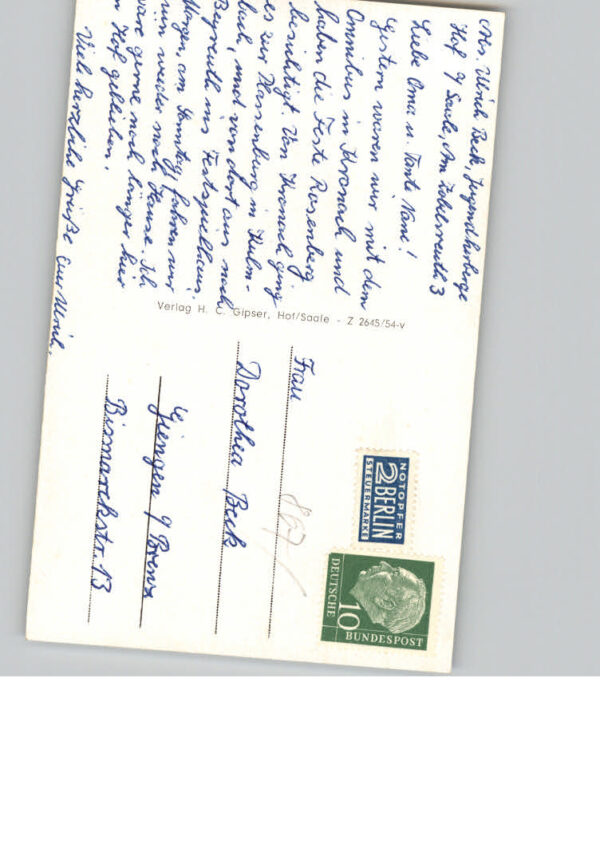 Abs. Ulrich Beck, Jugendherberge
Hof a/ Saale, Am Zobelsreuth 3
Liebe Oma u. Tante Nane!
Gestern waren wir mit dem
Omnibus in Kronach und
haben die Feste Rosenberg
besichtigt. Von Kronach ging
es zur Plassenburg in Kulm-
bach, und von dort aus nach
Bayreuth ins Festspielhaus.
Morgen, am Sonntag fahren wir
nun wieder nach Hause. Ich
wäre gerne noch länger hier
in Hof geblieben.
Viele herzliche Grüße Euer Ulrich.
Verlag H. C. Gipser, Hof/Saale - Z 2645/54-v
Frau
Dorothea Beck
Giengen a/ Brenz
Bismarckstr. 13
NOTOPFER
2 BERLIN
STEUERMARKE
DEUTSCHE
10
BUNDESPOST